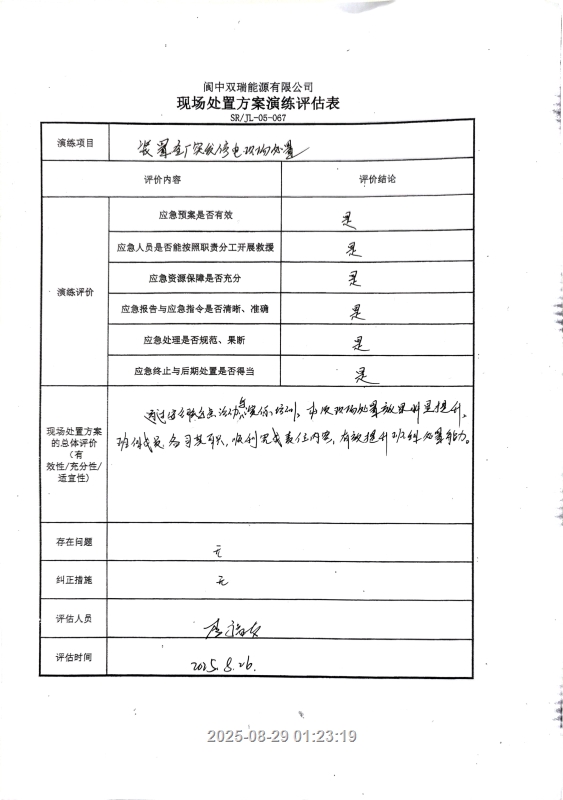 阆中双瑞能源有限公司
现场处置方案演练评估表
SR/JL-05-067
演练项目
装置全厂突发停电现场处置
评价内容
评价结论
演练评价
应急预案是否有效
是
应急人员是否能按照职责分工开展救援
是
应急资源保障是否充分
是
应急报告与应急指令是否清晰、准确
是
应急处理是否规范、果断
是
应急终止与后期处置是否得当
是
现场处置方案
的总体评价
(有
效性/充分性/
适宜性)
通过 培训，本次现场处置效果明显提升，
班组成员各司其职，顺利完成责任内容，有效提升班组处置能力。
存在问题
无
纠正措施
无
评估人员
评估时间
2025.8.26.
2025-08-29 01:23:19